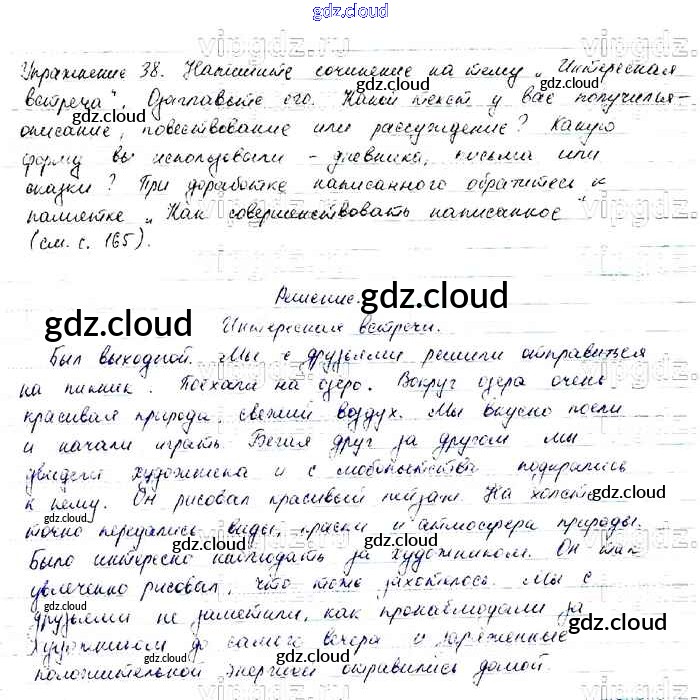 gdz.cloud
Упражнение 38. Напишите сочинение на тему „Интересная
встреча". Озаглавьте его. Какой текст у вас получился -
описание, повествование или рассуждение? Какую
форму вы использовали - дневника, письма или
сказки? При доработке написанного обратитесь к
памятке „Как совершенствовать написанное"
(см. с. 165).
Решение.
gdz.cloud
gdz.cloud
Интересная встреча.
Был выходной. Мы с друзьями решили отправиться
на пикник. Поехали на озеро. Вокруг озера очень
красивая природа, свежий воздух. Мы вкусно поели
и начали играть. Бегая друг за другом мы
увидели художника и с любопытством подкрались
к нему. Он рисовал красивый пейзаж. На холсте
точно передались виды, краски и атмосфера природы.
Было интересно наблюдать за художником. Он так
увлеченно рисовал, что тоже захотелось. Мы с
друзьями не заметили, как пронаблюдали за
художником до самого вечера и заряженные
положительной энергией отправились домой.